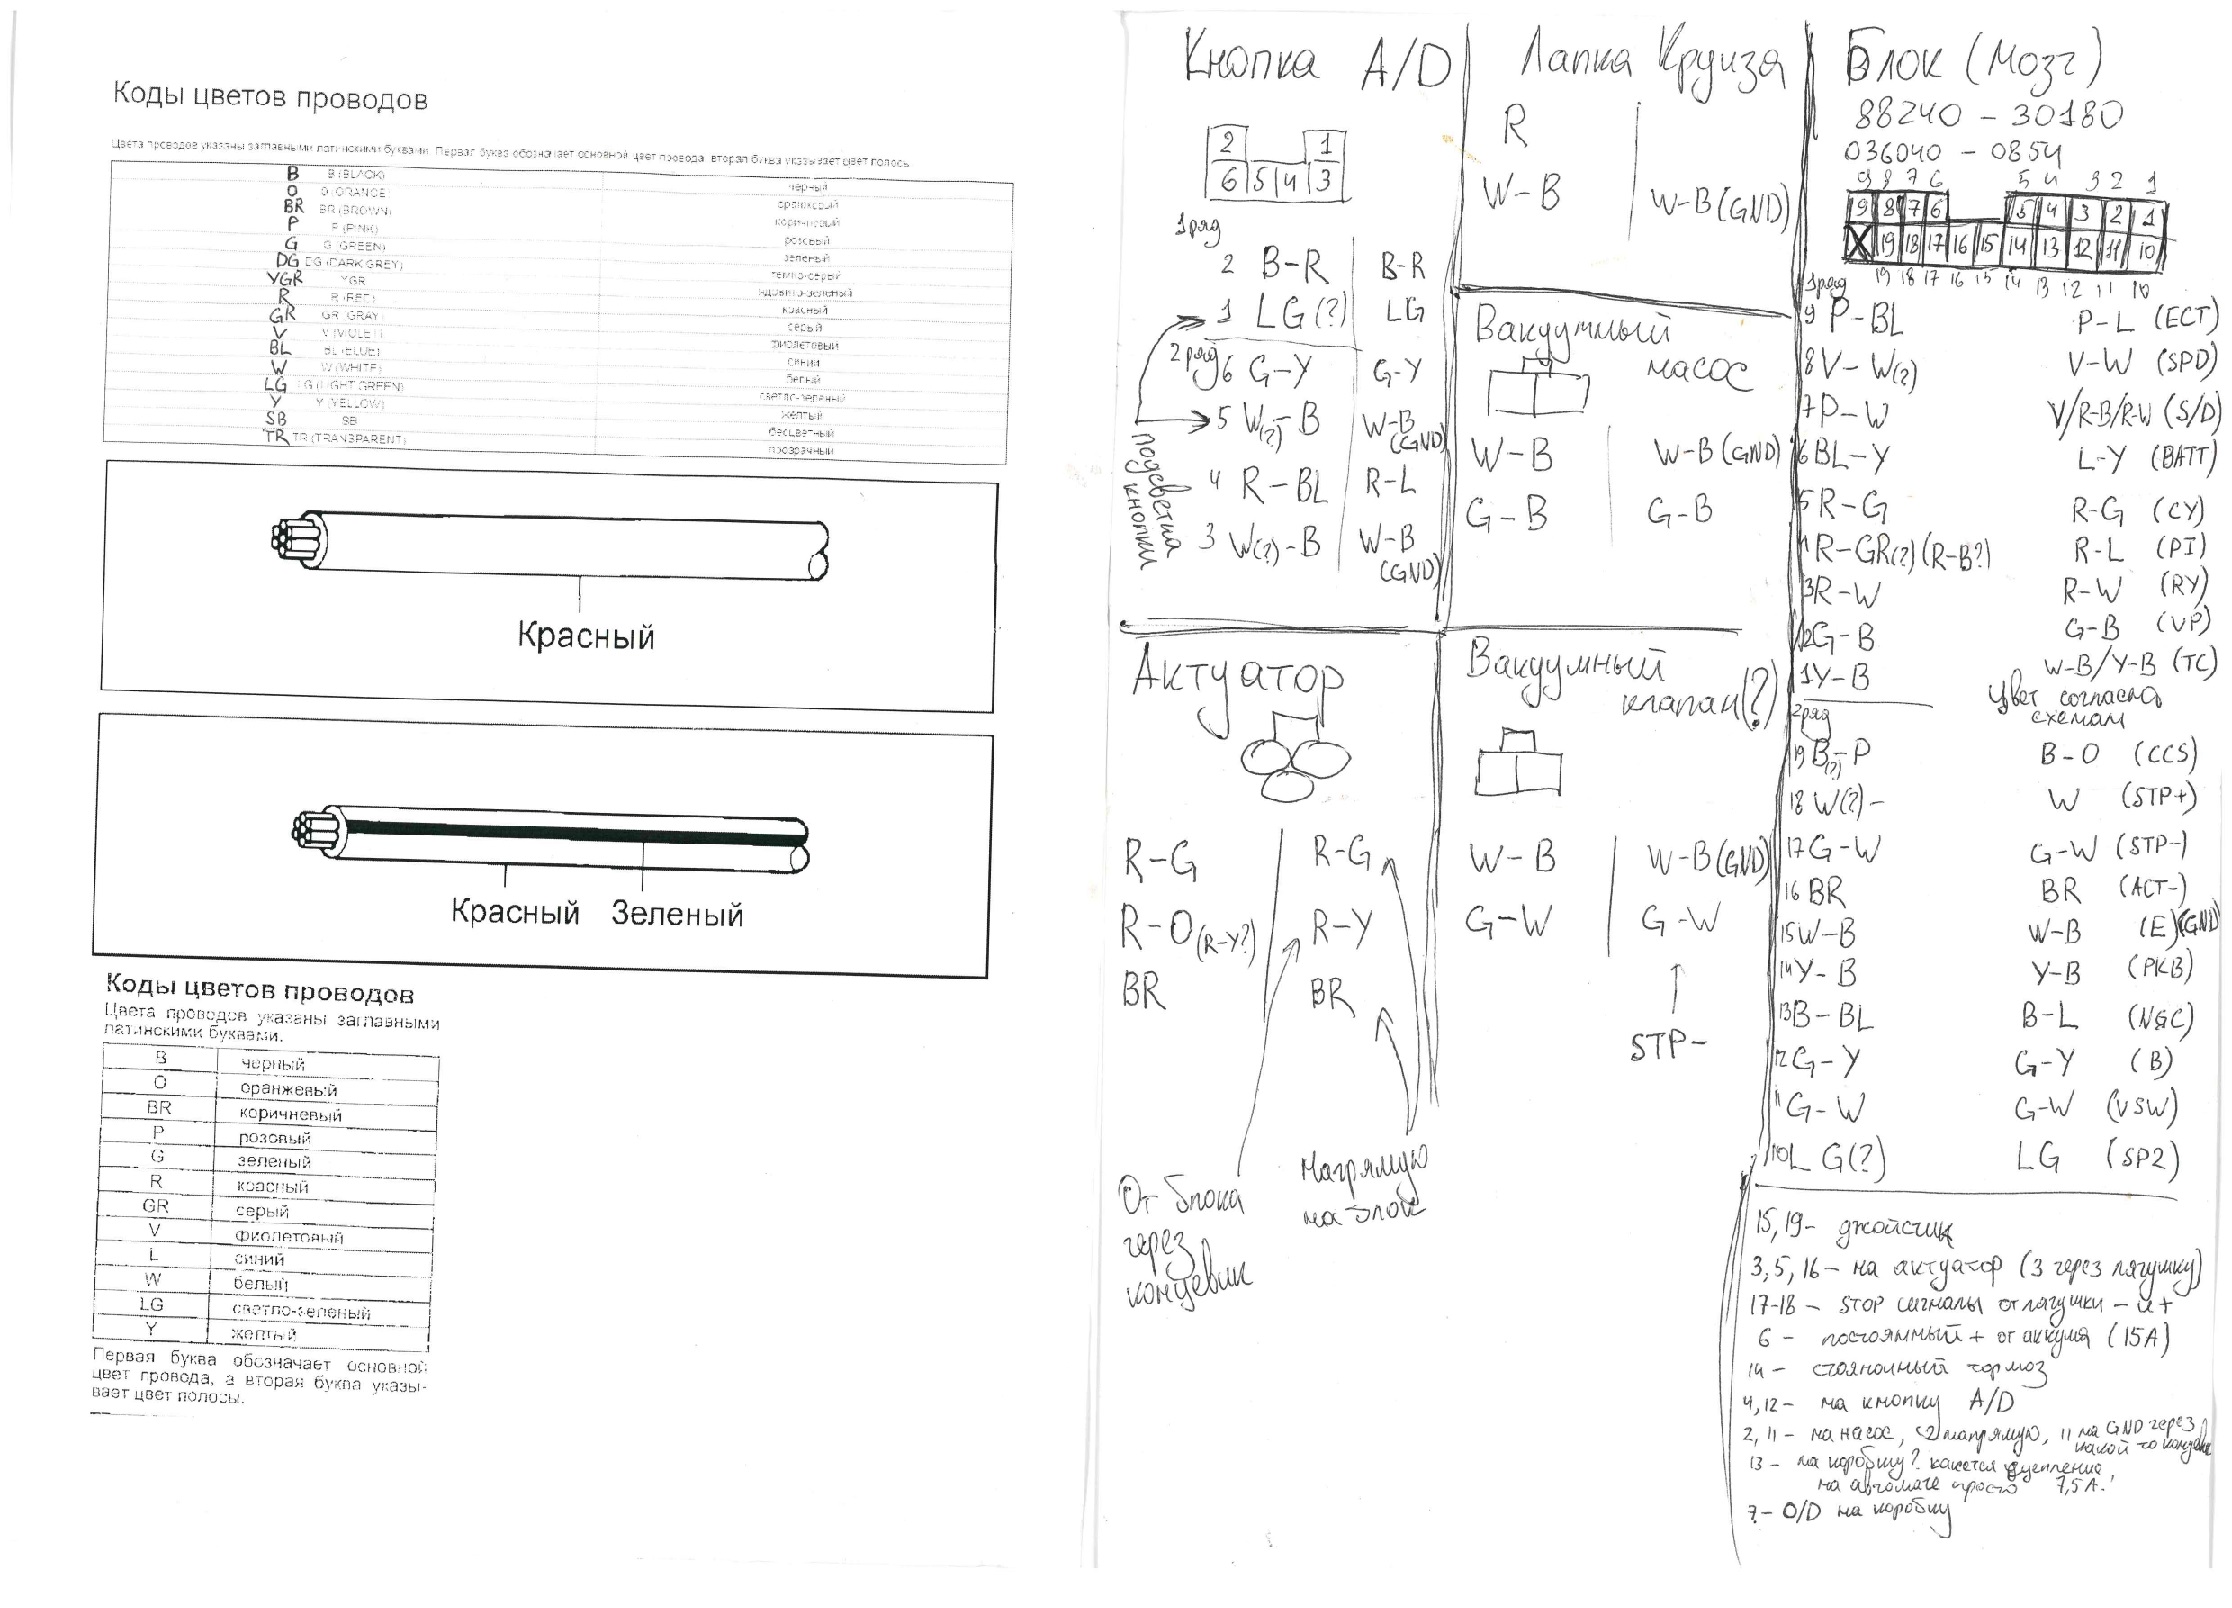 Коды цветов проводов
Цвета проводов указаны заглавными латинскими буквами. Первая буква обозначает основной цвет провода, вторая буква указывает цвет полосы.
B B (BLACK) черный
O O (ORANGE) оранжевый
BR BR (BROWN) коричневый
P P (PINK) розовый
G G (GREEN) зеленый
DG DG (DARK GREY) темно-серый
YGR YGR ядовито-зеленый
R R (RED) красный
GR GR (GRAY) серый
V V (VIOLET) фиолетовый
BL BL (BLUE) синий
W W (WHITE) белый
LG LG (LIGHT GREEN) светло-зеленый
Y Y (YELLOW) желтый
SB SB бесцветный
TR TR (TRANSPARENT) прозрачный
Красный
Красный Зеленый
Коды цветов проводов
Цвета проводов указаны заглавными
латинскими буквами.
B черный
O оранжевый
BR коричневый
P розовый
G зеленый
R красный
GR серый
V фиолетовый
L синий
W белый
LG светло-зеленый
Y желтый
Первая буква обозначает основной
цвет провода, а вторая буква указы-
вает цвет полосы.
Кнопка A/D
2 1
6 5 4 3
1 ряд
2 B-R B-R
1 LG(?) LG
2 ряд
6 G-Y G-Y
5 W(?)-B W-B (GND)
4 R-BL R-L
3 W(?)-B W-B (GND)
подсветка
кнопки
Лапка Круиза
R
W-B W-B(GND)
Вакуумный
насос
W-B W-B(GND)
G-B G-B
Актуатор
R-G R-G
R-O(R-Y?) R-Y
BR BR
От блока
через
концевик
Напрямую
на блок
Вакуумный
клапан(?)
W-B W-B(GND)
G-W G-W
STP-
Блок (Мозг)
88240-30180
036040-0854
9 8 7 6 5 4 3 2 1
9 8 7 6 5 4 3 2 1
X 19 18 17 16 15 14 13 12 11 10
19 18 17 16 15 14 13 12 11 10
1 ряд
9 P-BL P-L (ECT)
8 V-W(?) V-W (SPD)
7 P-W V/R-B/R-W (S/D)
6 BL-Y L-Y (BATT)
5 R-G R-G (CY)
4 R-GR(?)(R-B?) R-L (PI)
3 R-W R-W (RY)
2 G-B G-B (VP)
1 Y-B W-B/Y-B (TC)
Цвет согласно
схемам
2 ряд
19 B(?)-P B-O (CCS)
18 W(?)- W (STP+)
17 G-W G-W (STP-)
16 BR BR (ACT-)
15 W-B W-B (E)(GND)
14 Y-B Y-B (PKB)
13 B-BL B-L (N&C)
12 G-Y G-Y (B)
11 G-W G-W (VSW)
10 LG(?) LG (SP2)
15, 19- джойстик
3, 5, 16- на актуатор (3 через лягушку)
17-18 - STOP сигналы от лягушки - и +
6 - постоянный + от аккума (15A)
14 - стояночный тормоз
4, 12- на кнопку A/D
2, 11- на насос, 2 напрямую, 11 на GND через
какой то
13 - на коробку? кажется сцепление,
на автомате просто 7,5A.
7- O/D на коробку